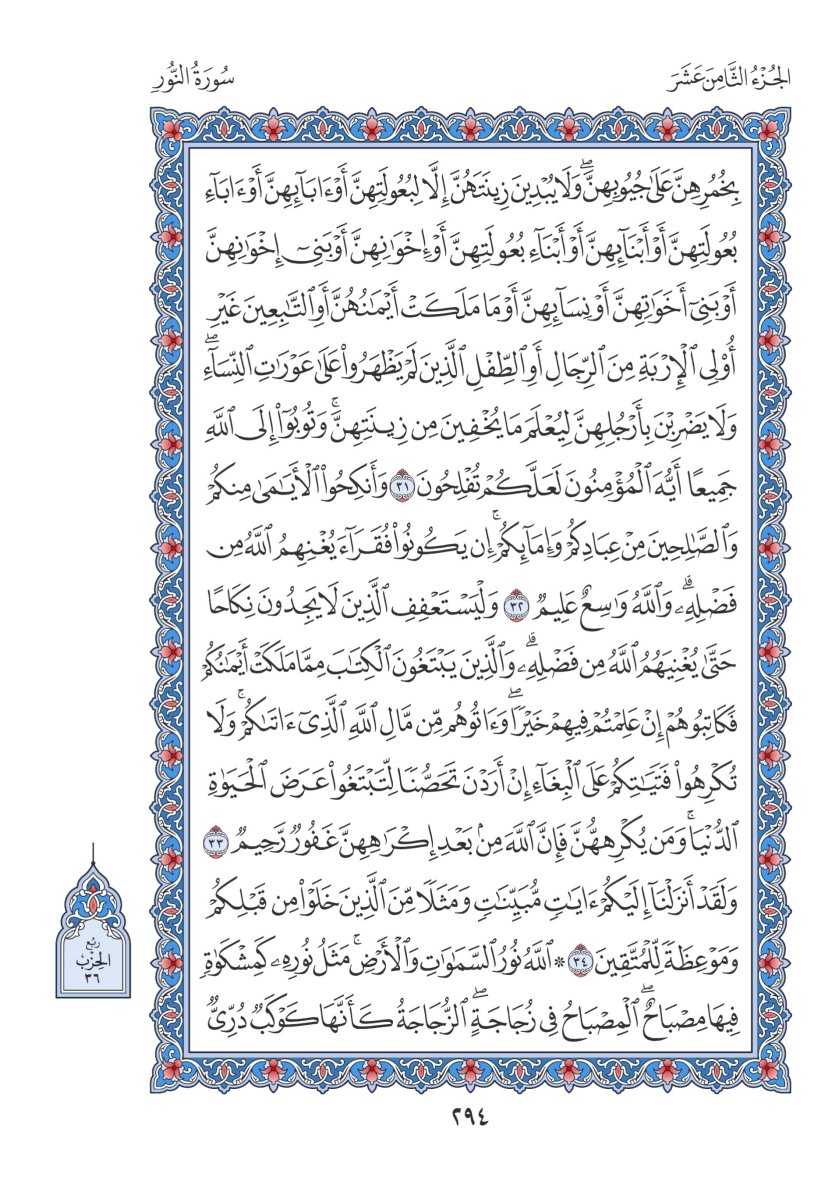 الجُزْءُ الثَّامِنَ عَشَرَ
سُورَةُ النُّورِ
بِخُمُرِهِنَّ عَلَىٰ جُيُوبِهِنَّۖ وَلَا يُبْدِينَ زِينَتَهُنَّ إِلَّا لِبُعُولَتِهِنَّ أَوْ ءَابَآئِهِنَّ أَوْ ءَابَآءِ
بُعُولَتِهِنَّ أَوْ أَبْنَآئِهِنَّ أَوْ أَبْنَآءِ بُعُولَتِهِنَّ أَوْ إِخْوَٰنِهِنَّ أَوْ بَنِيٓ إِخْوَٰنِهِنَّ
أَوْ بَنِيٓ أَخَوَٰتِهِنَّ أَوْ نِسَآئِهِنَّ أَوْ مَا مَلَكَتْ أَيْمَٰنُهُنَّ أَوِ ٱلتَّٰبِعِينَ غَيْرِ
أُوْلِي ٱلْإِرْبَةِ مِنَ ٱلرِّجَالِ أَوِ ٱلطِّفْلِ ٱلَّذِينَ لَمْ يَظْهَرُواْ عَلَىٰ عَوْرَٰتِ ٱلنِّسَآءِۖ
وَلَا يَضْرِبْنَ بِأَرْجُلِهِنَّ لِيُعْلَمَ مَا يُخْفِينَ مِن زِينَتِهِنَّۚ وَتُوبُوٓاْ إِلَى ٱللَّهِ
جَمِيعًا أَيُّهَ ٱلْمُؤْمِنُونَ لَعَلَّكُمْ تُفْلِحُونَ ٣١ وَأَنكِحُواْ ٱلْأَيَٰمَىٰ مِنكُمْ
وَٱلصَّٰلِحِينَ مِنْ عِبَادِكُمْ وَإِمَآئِكُمْۚ إِن يَكُونُواْ فُقَرَآءَ يُغْنِهِمُ ٱللَّهُ مِن
فَضْلِهِۦۗ وَٱللَّهُ وَٰسِعٌ عَلِيمٌ ٣٢ وَلْيَسْتَعْفِفِ ٱلَّذِينَ لَا يَجِدُونَ نِكَاحًا
حَتَّىٰ يُغْنِيَهُمُ ٱللَّهُ مِن فَضْلِهِۦۗ وَٱلَّذِينَ يَبْتَغُونَ ٱلْكِتَٰبَ مِمَّا مَلَكَتْ أَيْمَٰنُكُمْ
فَكَاتِبُوهُمْ إِنْ عَلِمْتُمْ فِيهِمْ خَيْرًاۖ وَءَاتُوهُم مِّن مَّالِ ٱللَّهِ ٱلَّذِيٓ ءَاتَىٰكُمْۚ وَلَا
تُكْرِهُواْ فَتَيَٰتِكُمْ عَلَى ٱلْبِغَآءِ إِنْ أَرَدْنَ تَحَصُّنًا لِّتَبْتَغُواْ عَرَضَ ٱلْحَيَوٰةِ
ٱلدُّنْيَاۚ وَمَن يُكْرِههُّنَّ فَإِنَّ ٱللَّهَ مِنۢ بَعْدِ إِكْرَٰهِهِنَّ غَفُورٌ رَّحِيمٌ ٣٣
وَلَقَدْ أَنزَلْنَآ إِلَيْكُمْ ءَايَٰتٍ مُّبَيِّنَٰتٍ وَمَثَلًا مِّنَ ٱلَّذِينَ خَلَوْاْ مِن قَبْلِكُمْ
وَمَوْعِظَةً لِّلْمُتَّقِينَ ٣٤ ۞ ٱللَّهُ نُورُ ٱلسَّمَٰوَٰتِ وَٱلْأَرْضِۚ مَثَلُ نُورِهِۦ كَمِشْكَوٰةٍ
فِيهَا مِصْبَاحٌۖ ٱلْمِصْبَاحُ فِي زُجَاجَةٍۖ ٱلزُّجَاجَةُ كَأَنَّهَا كَوْكَبٌ دُرِّيٌّ
رُبُع
الحِزْب
٣٦
٢٩٤